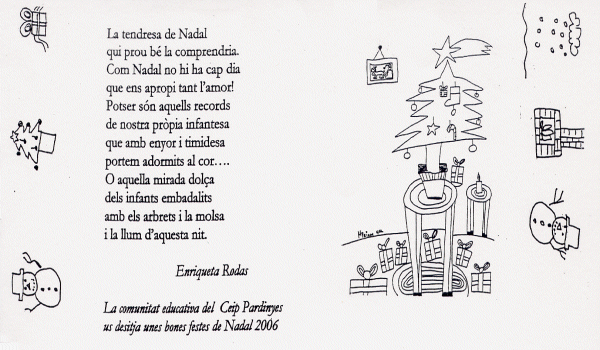 La tendresa de Nadal
qui prou bé la comprendria.
Com Nadal no hi ha cap dia
que ens apropi tant l'amor!
Potser són aquells records
de nostra pròpia infantesa
que amb enyor i timidesa
portem adormits al cor….
O aquella mirada dolça
dels infants embadalits
amb els arbrets i la molsa
i la llum d'aquesta nit.
Enriqueta Rodas
La comunitat educativa del Ceip Pardinyes
us desitja unes bones festes de Nadal 2006